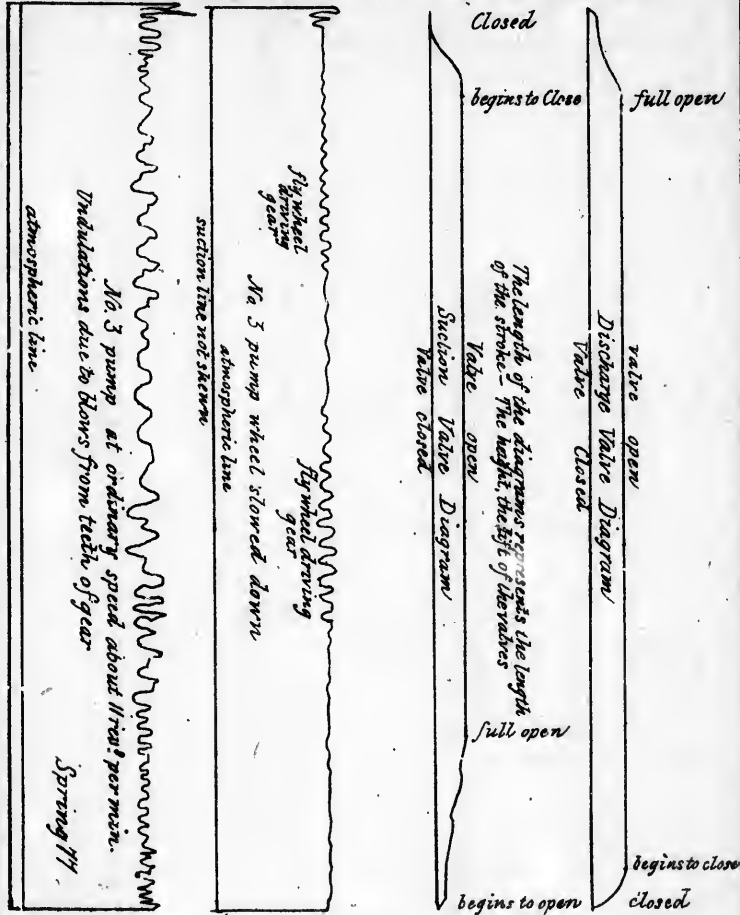 Closed
begins to Close
full open
valve open
Discharge Valve Diagram
Valve Closed
The length of the diagrams represents the length
of the stroke – The height, the lift of the valves
Valve open
Suction Valve Diagram
Valve closed
full open
begins to open
begins to close
closed
fly wheel
driving
gear
fly wheel driving
gear
No. 3 pump wheel slowed down
atmospheric line
suction line not shewn
No. 3 pump at ordinary speed about 11 revs. per min.
Undulations due to blows from teeth of gear
Spring
atmospheric line